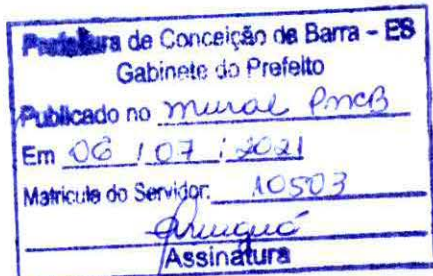 Prefeitura de Conceição da Barra - ES
Gabinete do Prefeito
Publicado no mural PMCB
Em 06 / 07 / 2021
Matricula do Servidor: 10503
Assinatura